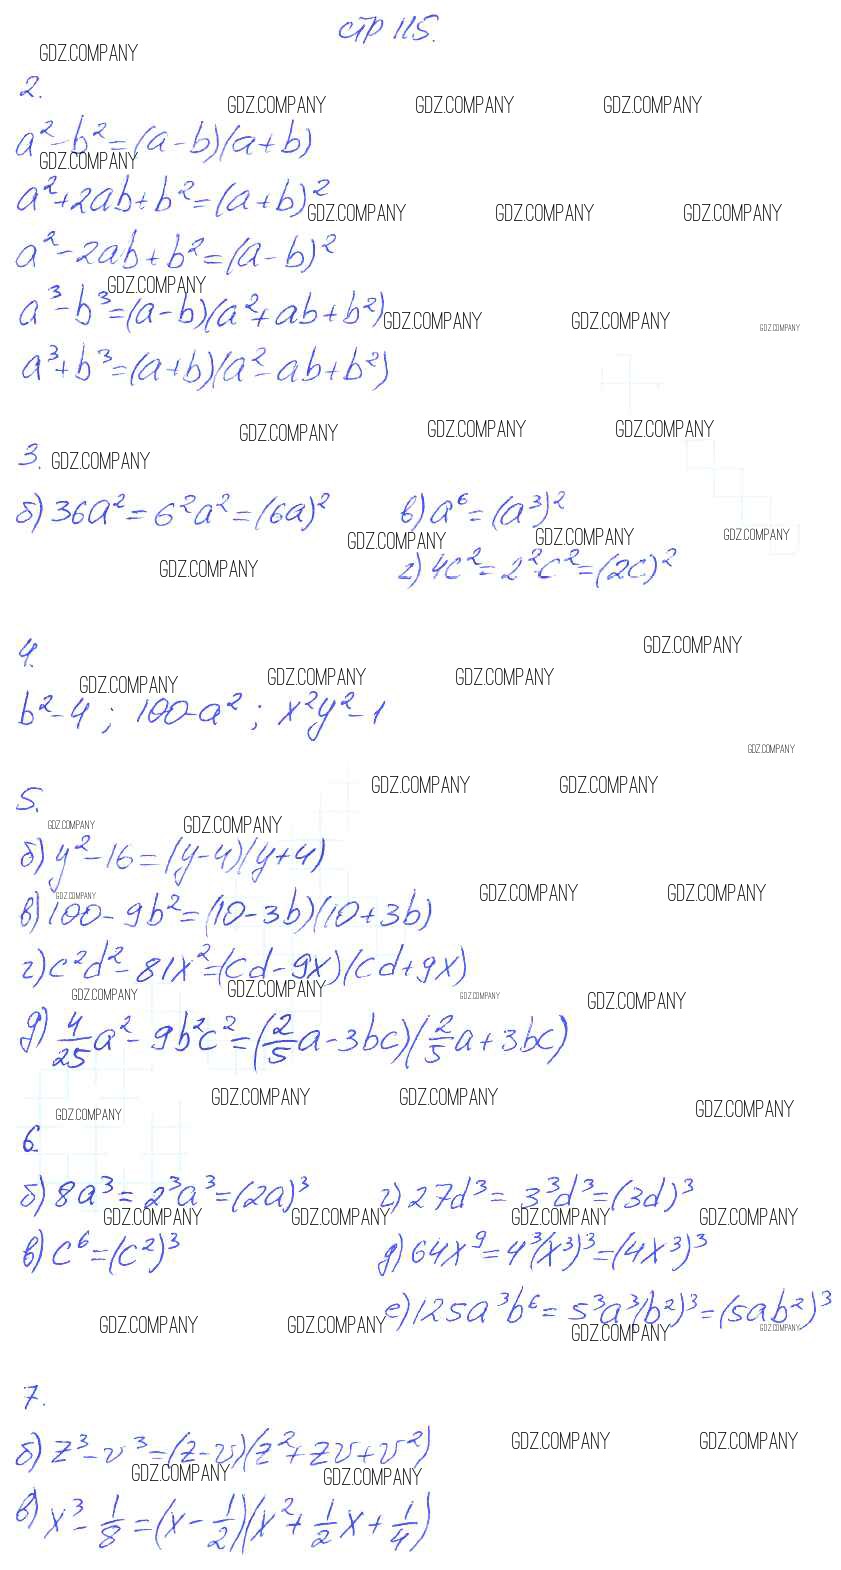 стр 115.
GDZ.COMPANY
2.
GDZ.COMPANY GDZ.COMPANY GDZ.COMPANY
a²-b²=(a-b)(a+b)
GDZ.COMPANY
a²+2ab+b²=(a+b)²
GDZ.COMPANY GDZ.COMPANY GDZ.COMPANY
a²-2ab+b²=(a-b)²
GDZ.COMPANY
a³-b³=(a-b)(a²+ab+b²)
GDZ.COMPANY GDZ.COMPANY GDZ.COMPANY
a³+b³=(a+b)(a²-ab+b²)
GDZ.COMPANY GDZ.COMPANY GDZ.COMPANY
3. GDZ.COMPANY
б) 36a²=6²a²=(6a)² в) a⁶=(a³)²
GDZ.COMPANY GDZ.COMPANY GDZ.COMPANY
GDZ.COMPANY г) 4c²=2²·c²=(2c)²
4.
GDZ.COMPANY
GDZ.COMPANY GDZ.COMPANY GDZ.COMPANY
b²-4 ; 100-a² ; x²y²-1
GDZ.COMPANY
5.
GDZ.COMPANY GDZ.COMPANY
GDZ.COMPANY GDZ.COMPANY
б) y²-16=(y-4)(y+4)
GDZ.COMPANY GDZ.COMPANY GDZ.COMPANY
в) 100-9b²=(10-3b)(10+3b)
г) c²d²-81x²=(cd-9x)(cd+9x)
GDZ.COMPANY GDZ.COMPANY GDZ.COMPANY GDZ.COMPANY
д) 4/25a²-9b²c²=(2/5a-3bc)(2/5a+3bc)
GDZ.COMPANY GDZ.COMPANY GDZ.COMPANY
GDZ.COMPANY
6
б) 8a³=2³a³=(2a)³ г) 27d³=3³d³=(3d)³
GDZ.COMPANY GDZ.COMPANY GDZ.COMPANY GDZ.COMPANY
в) c⁶=(c²)³ д) 64x⁹=4³(x³)³=(4x³)³
е) 125a³b⁶=5³a³(b²)³=(5ab²)³
GDZ.COMPANY GDZ.COMPANY GDZ.COMPANY GDZ.COMPANY
7.
б) z³-v³=(z-v)(z²+zv+v²)
GDZ.COMPANY GDZ.COMPANY
GDZ.COMPANY GDZ.COMPANY
в) x³-1/8=(x-1/2)(x²+1/2x+1/4)